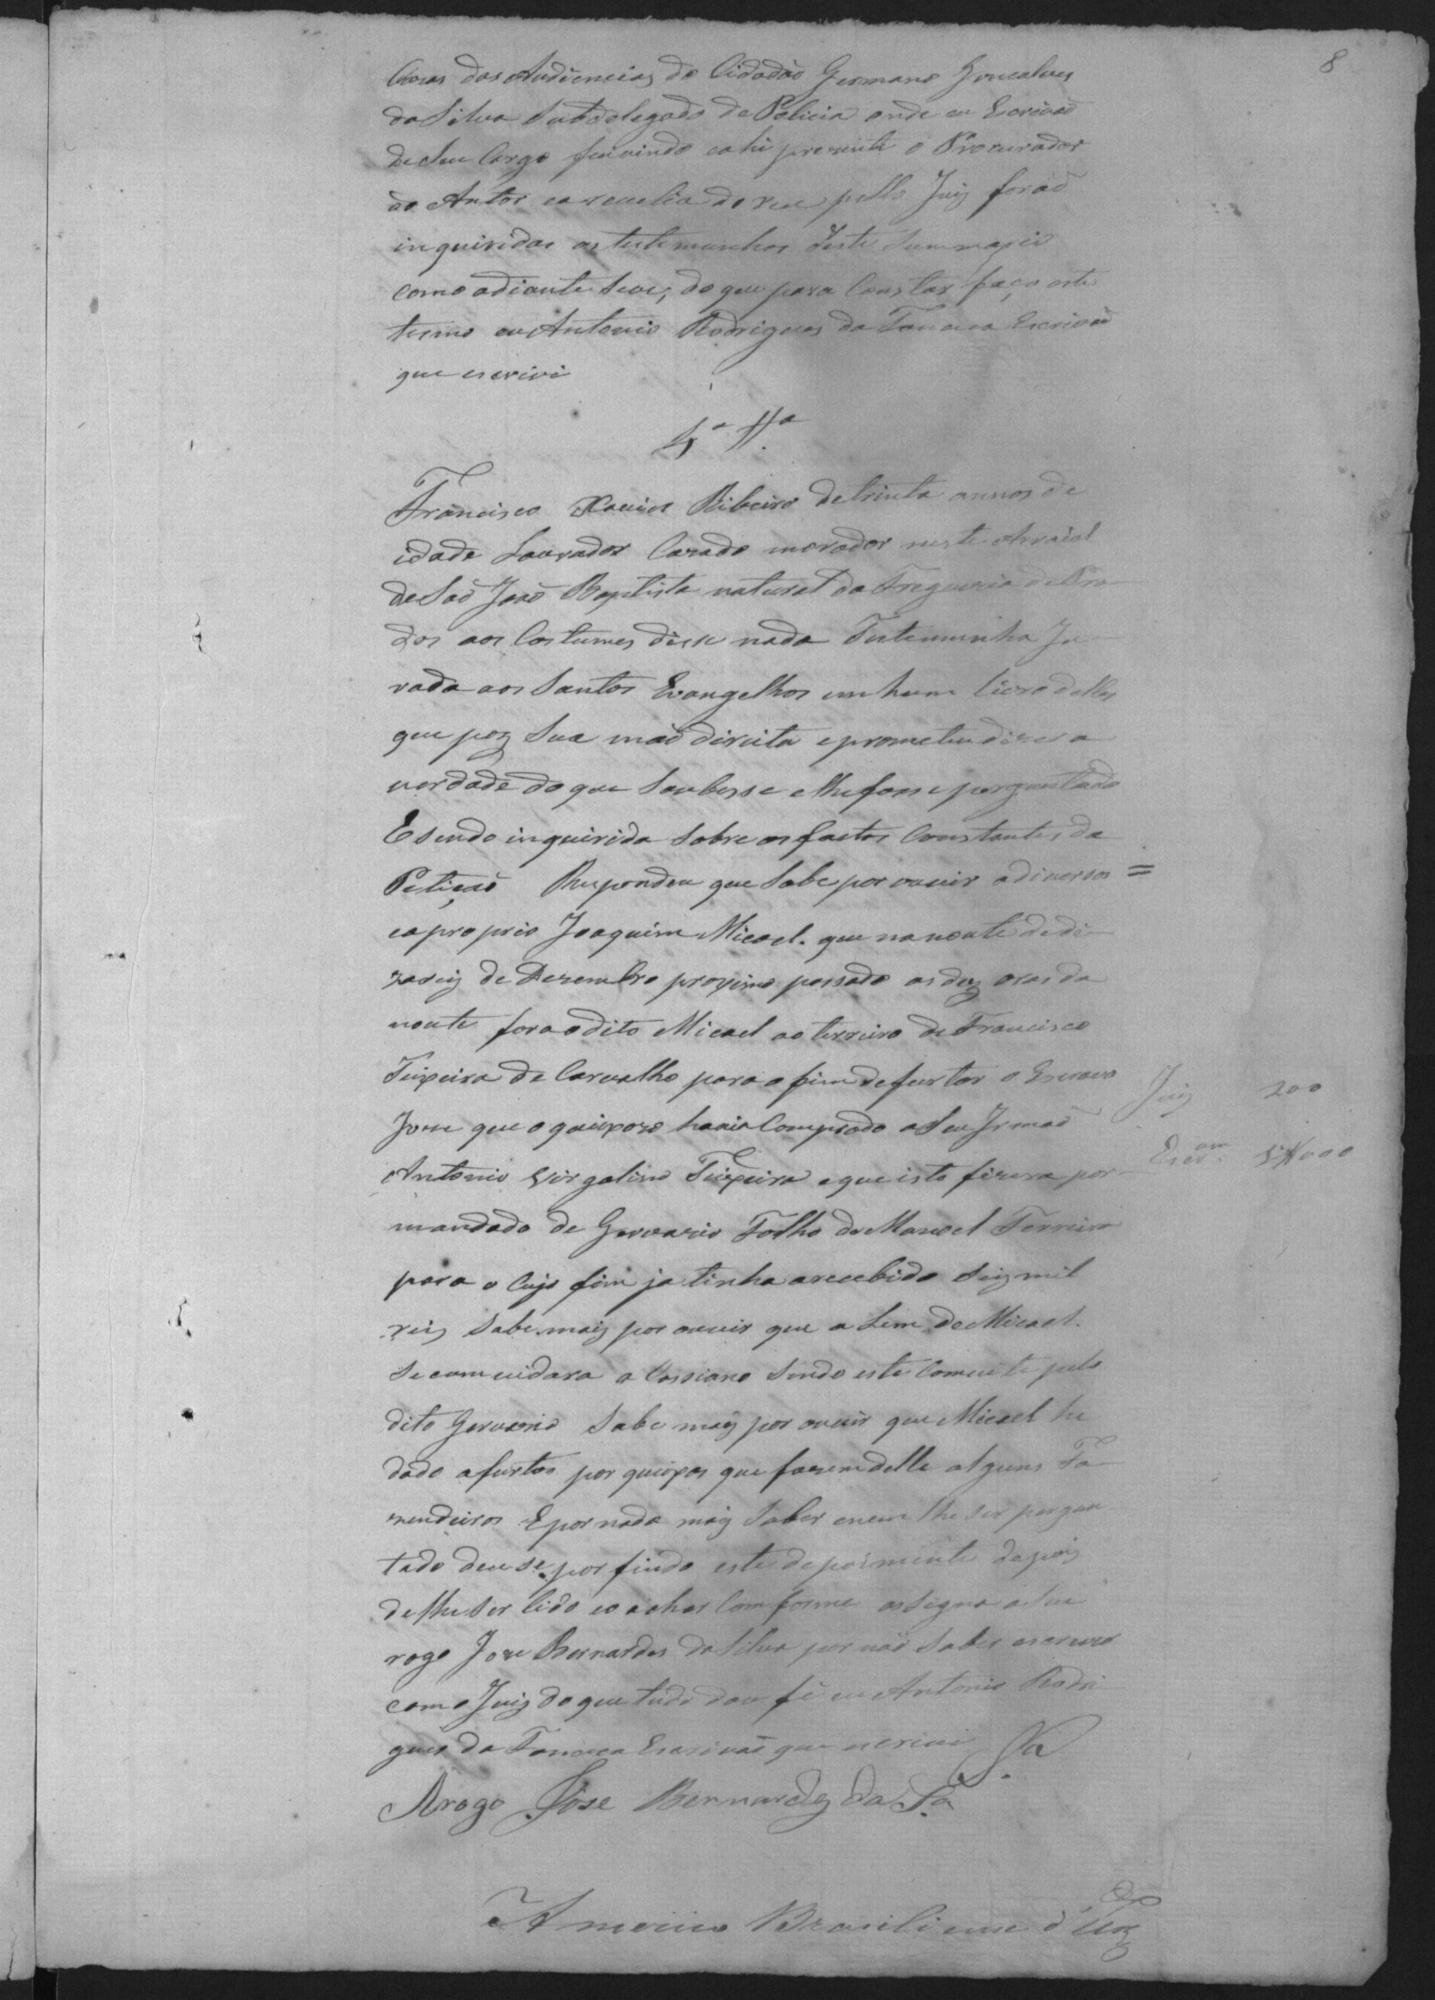 8
Cazas das Audiencias do Cidadão Germano Goncalves
da Silva Subdelegado de Policia onde eu Escrivão
de Seu Cargo fui vindo e ahi prezente o Procurador
do Autor e a revelia do reu pello Juiz forão
inquiridas as testemunhas deste Summario
como adiante Seve; do que para Constar faço este
termo eu Antonio Rodrigues da Fonceca Escrivão
que escrivi
4ª Tª
Francisco Xavier Ribeiro de trinta annos de
idade Lavrador Cazado morador neste Arraial
de São João Baptista natural da Freguezia de Pra
dos aos Costumes disse nada Testemunha Ju
rada aos Santos Evangelhos em hum livro delles
que poz Sua mão direita e prometeu dizer a
verdade do que Soubesse e lhe fosse perguntado
E sendo inquirida Sobre os factos Constantes da
Petição Respondeu que Sabe por ouvir a diversos =
e a proprio Joaquim Micael. que na noute de di
zaseiz de Dezembro proximo passado as dez oras da
noute fora o dito Micael ao terreiro de Francisco
Teixeira de Carvalho para o fim de furtar o Escravo
Joze que o queixozo havia Comprado a Seu Irmão
Antonio Virgolino Teixeira e que isto fizera por
mandado de Gervazio Folho de Manoel Ferreira
para o Cujo fim ja tinha arecebido Seiz mil
reis Sabe maiz por ouvir que a Lem de Micael.
Se comvidara a Cassiano Sendo este Comvite pelo
dito Gervazio Sabe maiz por ouvir que Micael he
dado a furtos por queixas que fazem delle alguns Fa
zendeiros E por nada maiz Saber e nem lhe ser pergun
tado deu se por findo este depoimento depois
de lhe Ser lido e o achar Comforme assigna a Seu
rogo Joze Bernardes da Silva por não Saber escrever
com o Juiz do que tudo dou fé eu Antonio Rodri
gues da Fonceca Escrivão que escrivi
Arogo Jose Bernardez da Sª
Americo Brasiliense d'
Juiz 200
Escram. 1$000